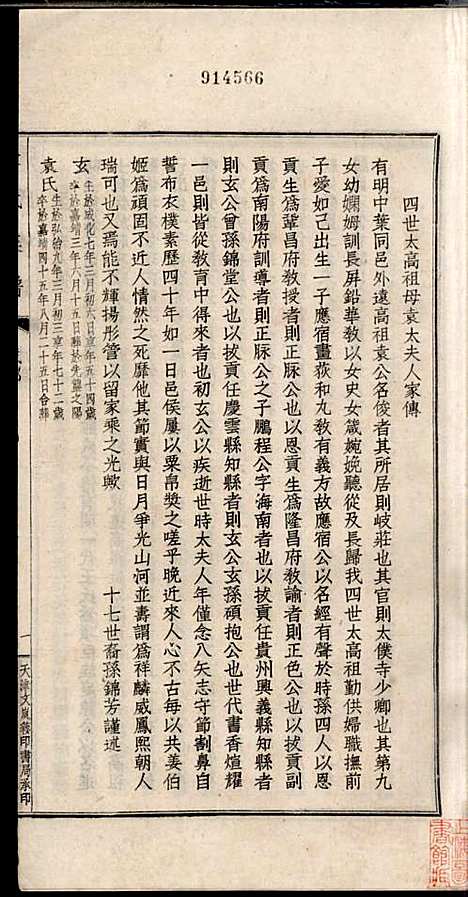 914566
四世太高祖母袁太夫人家傳
有明中葉同邑外遠高祖袁公名俊者其所居則岐莊也其官則太僕寺少卿也其第九
女幼嫻姆訓長屏鉛華敎以女史女箴婉娩聽從及長歸我四世太高祖勤供婦職撫前
子愛如己出生一子應宿畫荻和丸敎有義方故應宿公以名經有聲於時孫四人以恩
貢生爲鞏昌府敎授者則正脲公也以恩貢生爲隆昌府敎諭者則正色公也以拔貢副
貢爲南陽府訓導者則正脲公之子鵬程公字海南者也以拔貢任貴州興義縣知縣者
則玄公曾孫錦堂公也以拔貢任慶雲縣知縣者則玄公玄孫碩抱公也世代書香煊耀
一邑則皆從敎育中得來者也初玄公以疾逝世時太夫人年僅念八矢志守節割鼻自
誓布衣樸素歷四十年如一日邑侯屢以粟帛獎之嗟乎晚近來人心不古每以共姜伯
姬爲頑固不近人情然之死靡他其節實與日月爭光山河並壽謂爲祥麟威鳳熙朝人
瑞可也又焉能不輝揚彤管以留家乘之光歟
十七世裔孫錦芳謹述
玄 生於成化七年三月初六日享年五十四歲
卒於嘉靖三年六月十五日葬於先塋之陽
袁氏 生於弘治九年三月初三享年七十二歲
卒於嘉靖四十五年八月二十五日合葬
一
天津文嵐簃印書局承印